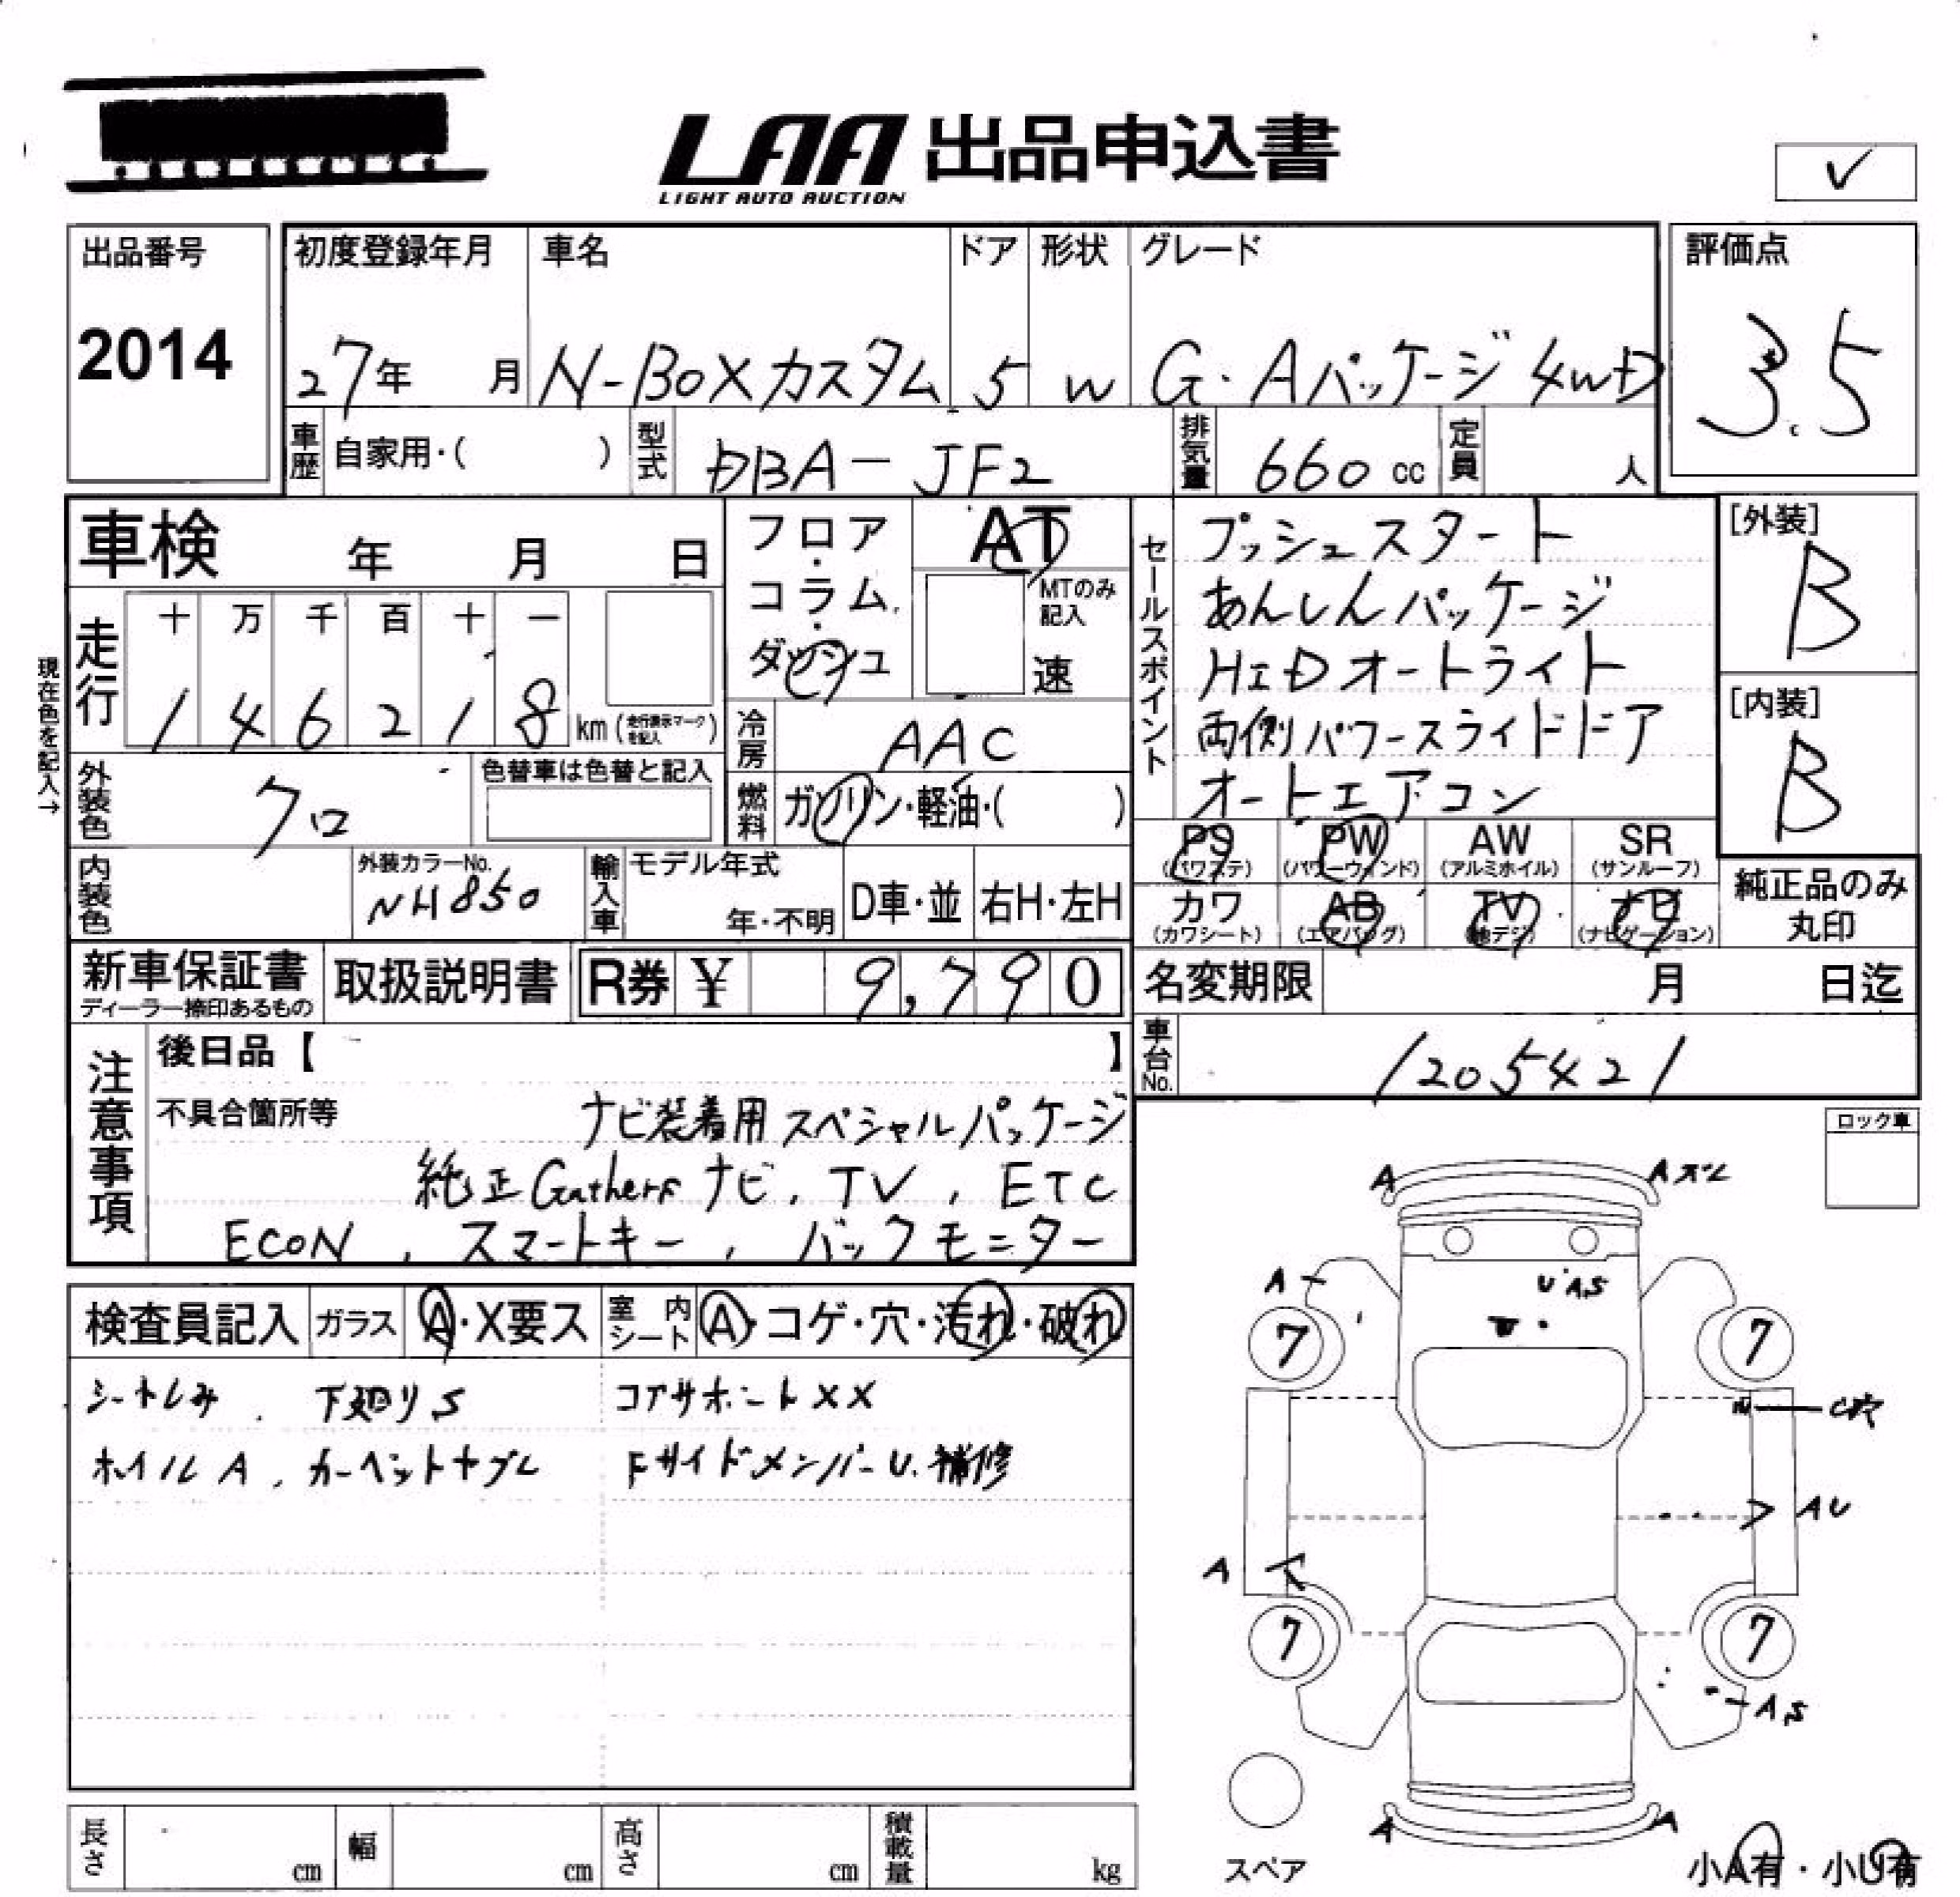 LAA 出品申込書
LIGHT AUTO AUCTION
✓
出品番号
2014
初度登録年月 車名 ドア 形状 グレード
27年 月 N-BOXカスタム 5 W G・Aパッケージ 4WD
評価点
3.5
車歴 自家用・( ) 型式 DBA-JF2 排気量 660cc 定員 人
車検 年 月 日
フロア・コラム・ダッシュ
AT
MTのみ記入
速
現在色を記入→
走行 十 万 千 百 十 一
1 4 6 2 1 8 km (走行表示マークを記入)
冷房 AAC
外装色 クロ
色替車は色替と記入
燃料 ガソリン・軽油・( )
内装色
外装カラーNo.
NH850
輸入車 モデル年式
年・不明 D車・並 右H・左H
セールスポイント
プッシュスタート
あんしんパッケージ
HIDオートライト
両側パワースライドドア
オートエアコン
[外装]
B
[内装]
B
PS PW AW SR
(パワステ) (パワーウィンド) (アルミホイル) (サンルーフ)
カワ AB TV ナビ
(カワシート) (エアバッグ) (地デジ) (ナビゲーション)
純正品のみ
丸印
新車保証書
ディーラー捺印あるもの
取扱説明書
R券 ¥ 9,790
名変期限 月 日迄
車台No. 1205421
注意事項
後日品【 】
不具合箇所等 ナビ装着用スペシャルパッケージ
純正Gathersナビ, TV, ETC
ECON, スマートキー, バックモニター
ロック車
検査員記入 ガラス A・X要ス 室内シート A・コゲ・穴・汚れ・破れ
シートしみ. 下廻りS コアサポートXX
ホイルA. カーペットヤブレ Fサイドメンバー U. 補修
A Aズレ
A U A,S
7 7
C穴
AU
A
7 7
A,S
A A
スペア
小A有・小U有
長さ cm 幅 cm 高さ cm 積載量 kg